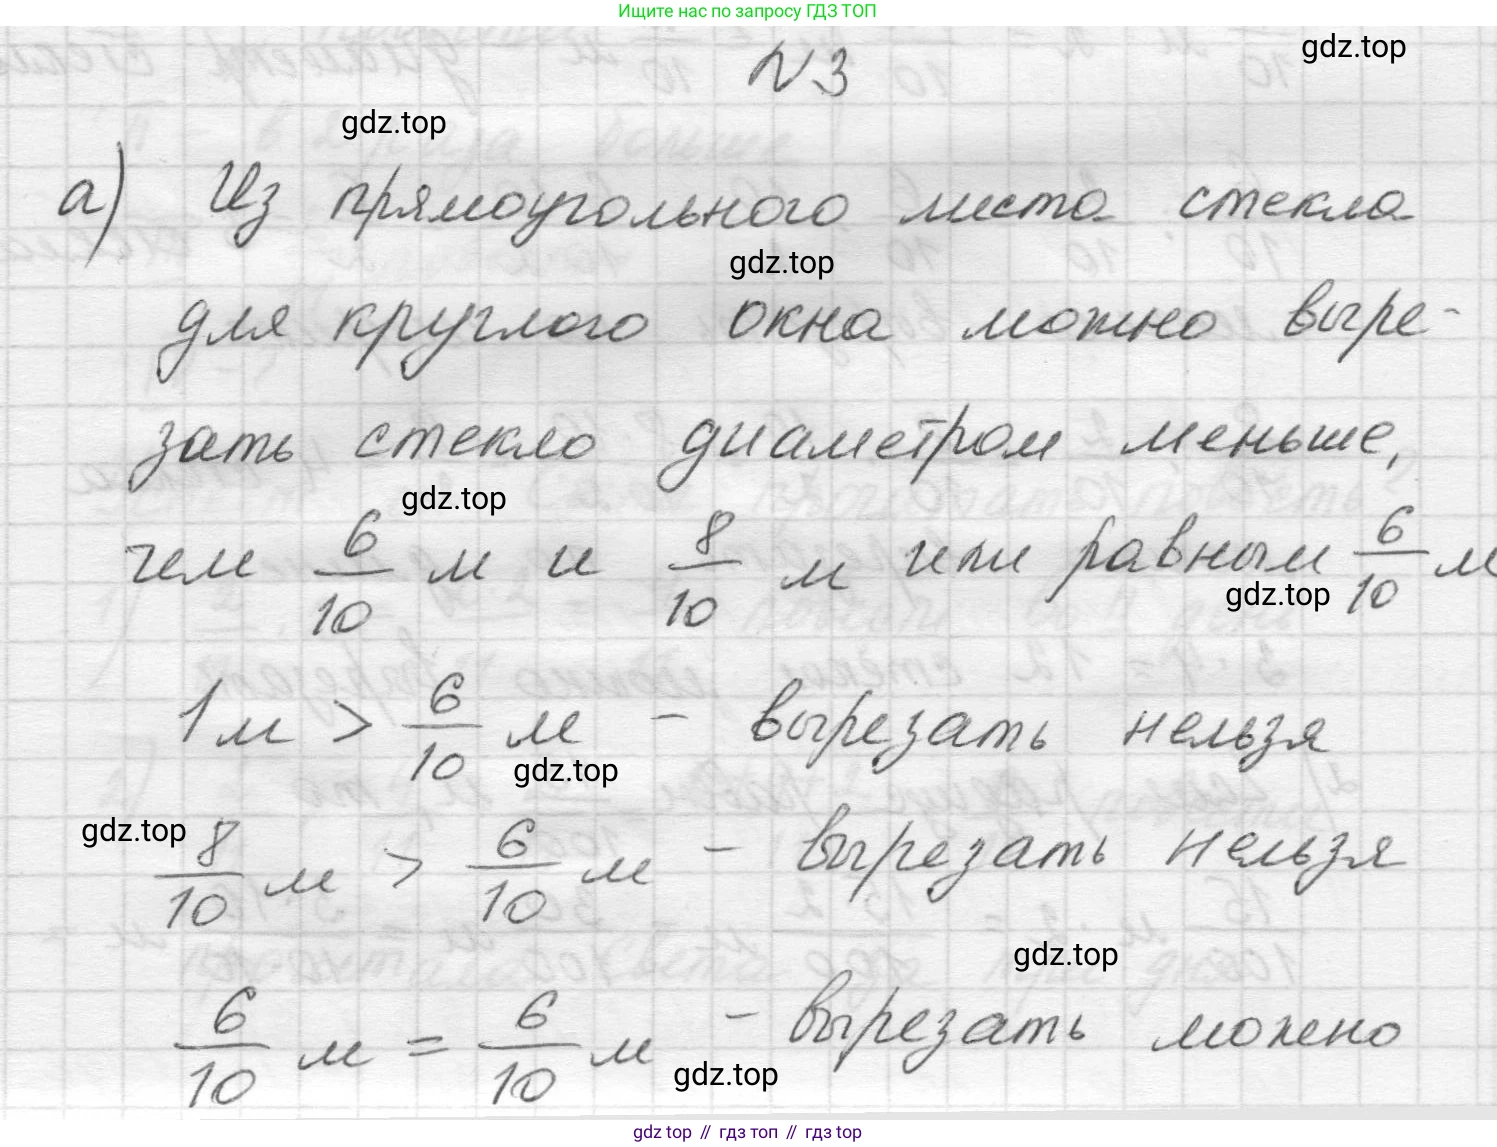 Ищите нас по запросу ГДЗ ТОП
gdz.top
N3
gdz.top
а) Из прямоугольного листа стекла
gdz.top
для круглого окна можно выре-
зать стекло диаметром меньше,
gdz.top
чем 6/10 м и 8/10 м или равным 6/10 м
gdz.top
1м > 6/10 м - вырезать нельзя
gdz.top
gdz.top
8/10 м > 6/10 м - вырезать нельзя
gdz.top
6/10 м = 6/10 м - вырезать можно
gdz.top
gdz top // гдз топ // гдз top